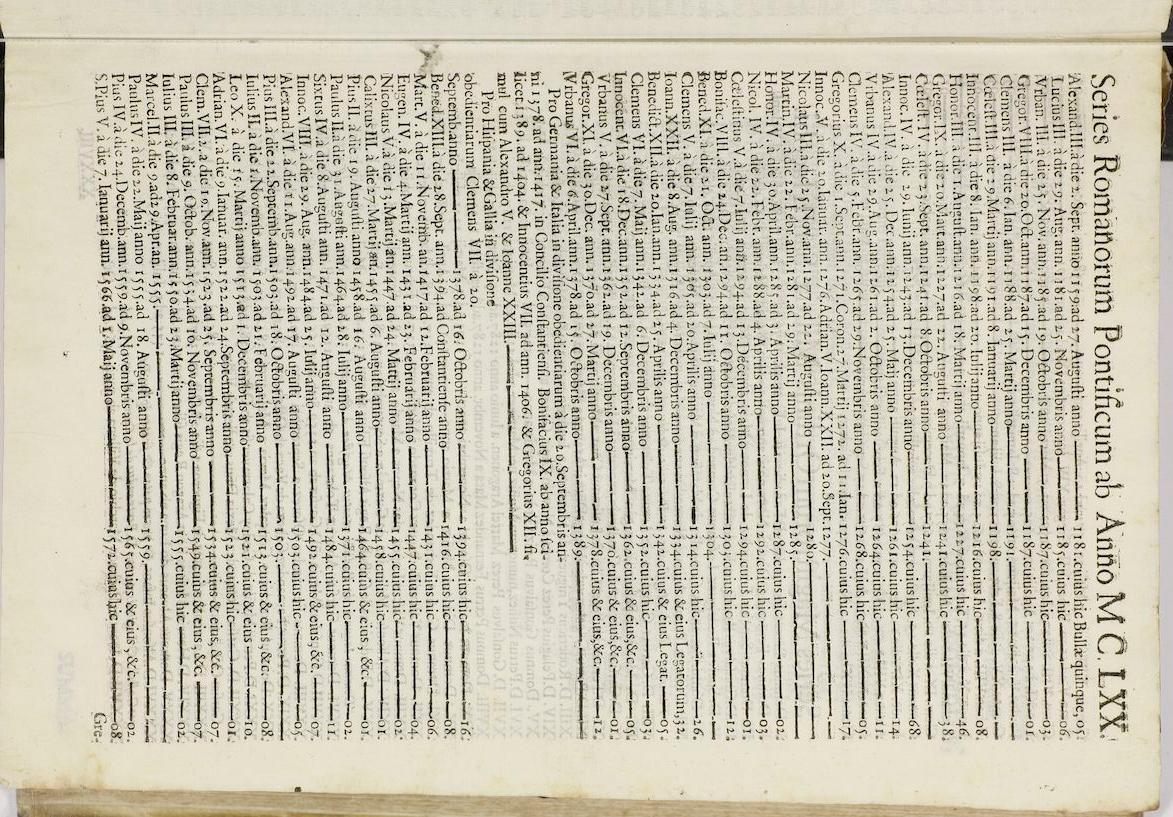 Series Romanorum Pontificum ab Anno M C. LXX.
Alexand. III. à die 2. Sept. anno 1159. ad 27. Augusti anno 1181. cuius hic Bullæ quinque, 05.
Lucius III. à die 29. Aug. ann. 1181. ad 25. Novembris anno 1185. cuius hic 06.
Vrban. III. à die 25. Nov. ann. 1185. ad 19. Octobris anno 1187. cuius hic 03.
Gregor. VIII. à die 20. Oct. ann. 1187. ad 15. Decembris anno 1187. cuius hic 01.
Clemens III. à die 6. Ian. ann. 1188. ad 25. Martij anno 1191.
Cœlest. III. à die 29. Martij ann. 1191. ad 8. Ianuarij anno 1198.
Innocent. III. à die 8. Ian. ann. 1198. ad 20. Iulij anno 1216. cuius hic 08.
Honor. III. à die 1. August. ann. 1216. ad 18. Martij anno 1227. cuius hic 46.
Gregor. IX. à die 20. Mart. ann. 1227. ad 22. Augusti anno 1241. cuius hic 38.
Cœlest. IV. à die 23. Sept. ann. 1241. ad 8. Octobris anno 1241.
Innoc. IV. à die 29. Iunij ann. 1243. ad 13. Decembris anno 1254. cuius hic 68.
Alexand. IV. à die 25. Dec. ann. 1254. ad 25. Maij anno 1261. cuius hic 14.
Vrbanus IV. à die 29. Aug. ann. 1261. ad 2. Octobris anno 1264. cuius hic 11.
Clemens IV. à die 5. Febr. ann. 1265. ad 29. Novembris anno 1268. cuius hic 05.
Gregorius X. à die 1. Sept. ann. 1271. Coron. 27. Martij 1272. ad 11. Ian. 1276. cuius hic 17.
Innoc. V. à die 20. Ianuar. ann. 1276. Adrian. V. Ioann. XXII. ad 20. Sept. 1277.
Nicolaus III. à die 25. Nov. ann. 1277. ad 22. Augusti anno 1280.
Martin. IV. à die 22. Febr. ann. 1281. ad 29. Martij anno 1285.
Honor. IV. à die 30. April. ann. 1285. ad 3. Aprilis anno 1287. cuius hic 02.
Nicol. IV. à die 22. Febr. ann. 1288. ad 4. Aprilis anno 1292. cuius hic 03.
Cœlestinus V. à die 7. Iulij ann. 1294. ad 13. Decembris anno 1294. cuius hic 01.
Bonifac. VIII. à die 24. Dec. ann. 1294. ad 11. Octobris anno 1303. cuius hic 12.
Bened. XI. à die 21. Oct. ann. 1303. ad 7. Iulij anno 1304.
Clemens V. à die 7. Iulij ann. 1305. ad 20. Aprilis anno 1314. cuius hic 26.
Ioann. XXII. à die 8. Aug. ann. 1316. ad 4. Decembris anno 1334. cuius & eius Legatorum, 32.
Benedict. XII. à die 20. Ian. ann. 1334. ad 25. Aprilis anno 1342. cuius & eius Legat. 05.
Clemens VI. à die 7. Maij ann. 1342. ad 6. Decembris anno 1352. cuius hic 03.
Innocent. VI. à die 18. Dec. ann. 1352. ad 12. Septembris anno 1362. cuius & eius, &c. 05.
Vrbanus V. à die 27. Sept. ann. 1362. ad 19. Decembris anno 1370. cuius & eius, &c. 01.
Gregor. XI. à die 30. Dec. ann. 1370. ad 27. Martij anno 1378. cuius & eius, &c. 12.
Vrbanus VI. à die 6. April. ann. 1378. ad 15. Octobris anno 1389.
Pro Germania & Italia in divisione obedientiarum à die 20. Septembris an-
ni 1378. ad ann. 1417. in Concilio Constantiensi. Bonifacius IX. ab anno sci-
licet 1389. ad 1404. & Innocentius VII. ad ann. 1406. & Gregorius XII. si-
mul cum Alexandro V. & Ioanne XXIII.
Pro Hispania & Gallia in divisione
obedientiarum Clemens VII. à 20.
Septemb. anno 1378. ad 16. Octobris anno 1394. cuius hic 16.
Bened. XIII. à die 28. Sept. ann. 1394. ad Constantiense anno 1416. cuius hic 08.
Mart. V. à die 11. Novemb. an. 1417. ad 12. Februarij anno 1431. cuius hic 06.
Eugen. IV. à die 4. Martij ann. 1431. ad 23. Februarij anno 1447. cuius hic 04.
Nicolaus V. à die 13. Martij an. 1447. ad 24. Martij anno 1455. cuius hic 02.
Calixtus III. à die 7. Martij an. 1455. ad 6. Augusti anno 1458. cuius hic 01.
Pius II. à die 19. Augusti anno 1458. ad 16. Augusti anno 1464. cuius & eius, &c. 01.
Paulus II. à die 31. Augusti ann. 1464. ad 28. Iulij anno 1371. cuius hic 11.
Sixtus IV. à die 8. Augusti ann. 1471. ad 12. Augusti anno 1484. cuius hic 02.
Innoc. VIII. à die 29. Aug. ann. 1484. ad 25. Iulij anno 1492. cuius & eius, &c. 07.
Alexand. VI. à die 11. Aug. ann. 1492. ad 17. Augusti anno 1503. cuius hic 05.
Pius III. à die 2. Septemb. ann. 1503. ad 18. Octobris anno 1503.
Iulius II. à die 1. Novemb. ann. 1503. ad 21. Februarij anno 1513. cuius & eius, &c. 08.
Leo X. à die 15. Martij anno 1513. ad 1. Decembris anno 1521. cuius & eius 10.
Adrian. VI. à die 9. Ianuar. ann. 1522. ad 24. Septembris anno 1523. cuius hic 01.
Clem. VII. à die 19. Nov. ann. 1523. ad 25. Septembris anno 1534. cuius & eius, &c. 07.
Paulus III. à die 9. Octob. ann. 1534. ad 10. Novembris anno 1549. cuius & eius, &c. 07.
Iulius III. à die 8. Februar. ann. 1550. ad 23. Martij anno 1555. cuius hic 02.
Marcel. II. à die 9. ad 29. Apr. an. 1555.
Paulus IV. à die 22. Maij anno 1555. ad 18. Augusti anno 1559.
Pius IV. à die 24. Decemb. ann. 1559. ad 9. Novembris anno 1565. cuius & eius, &c. 02.
S. Pius V. à die 7. Ianuarij ann. 1566. ad 1. Maij anno 1572. cuius hic 08.
Gre-